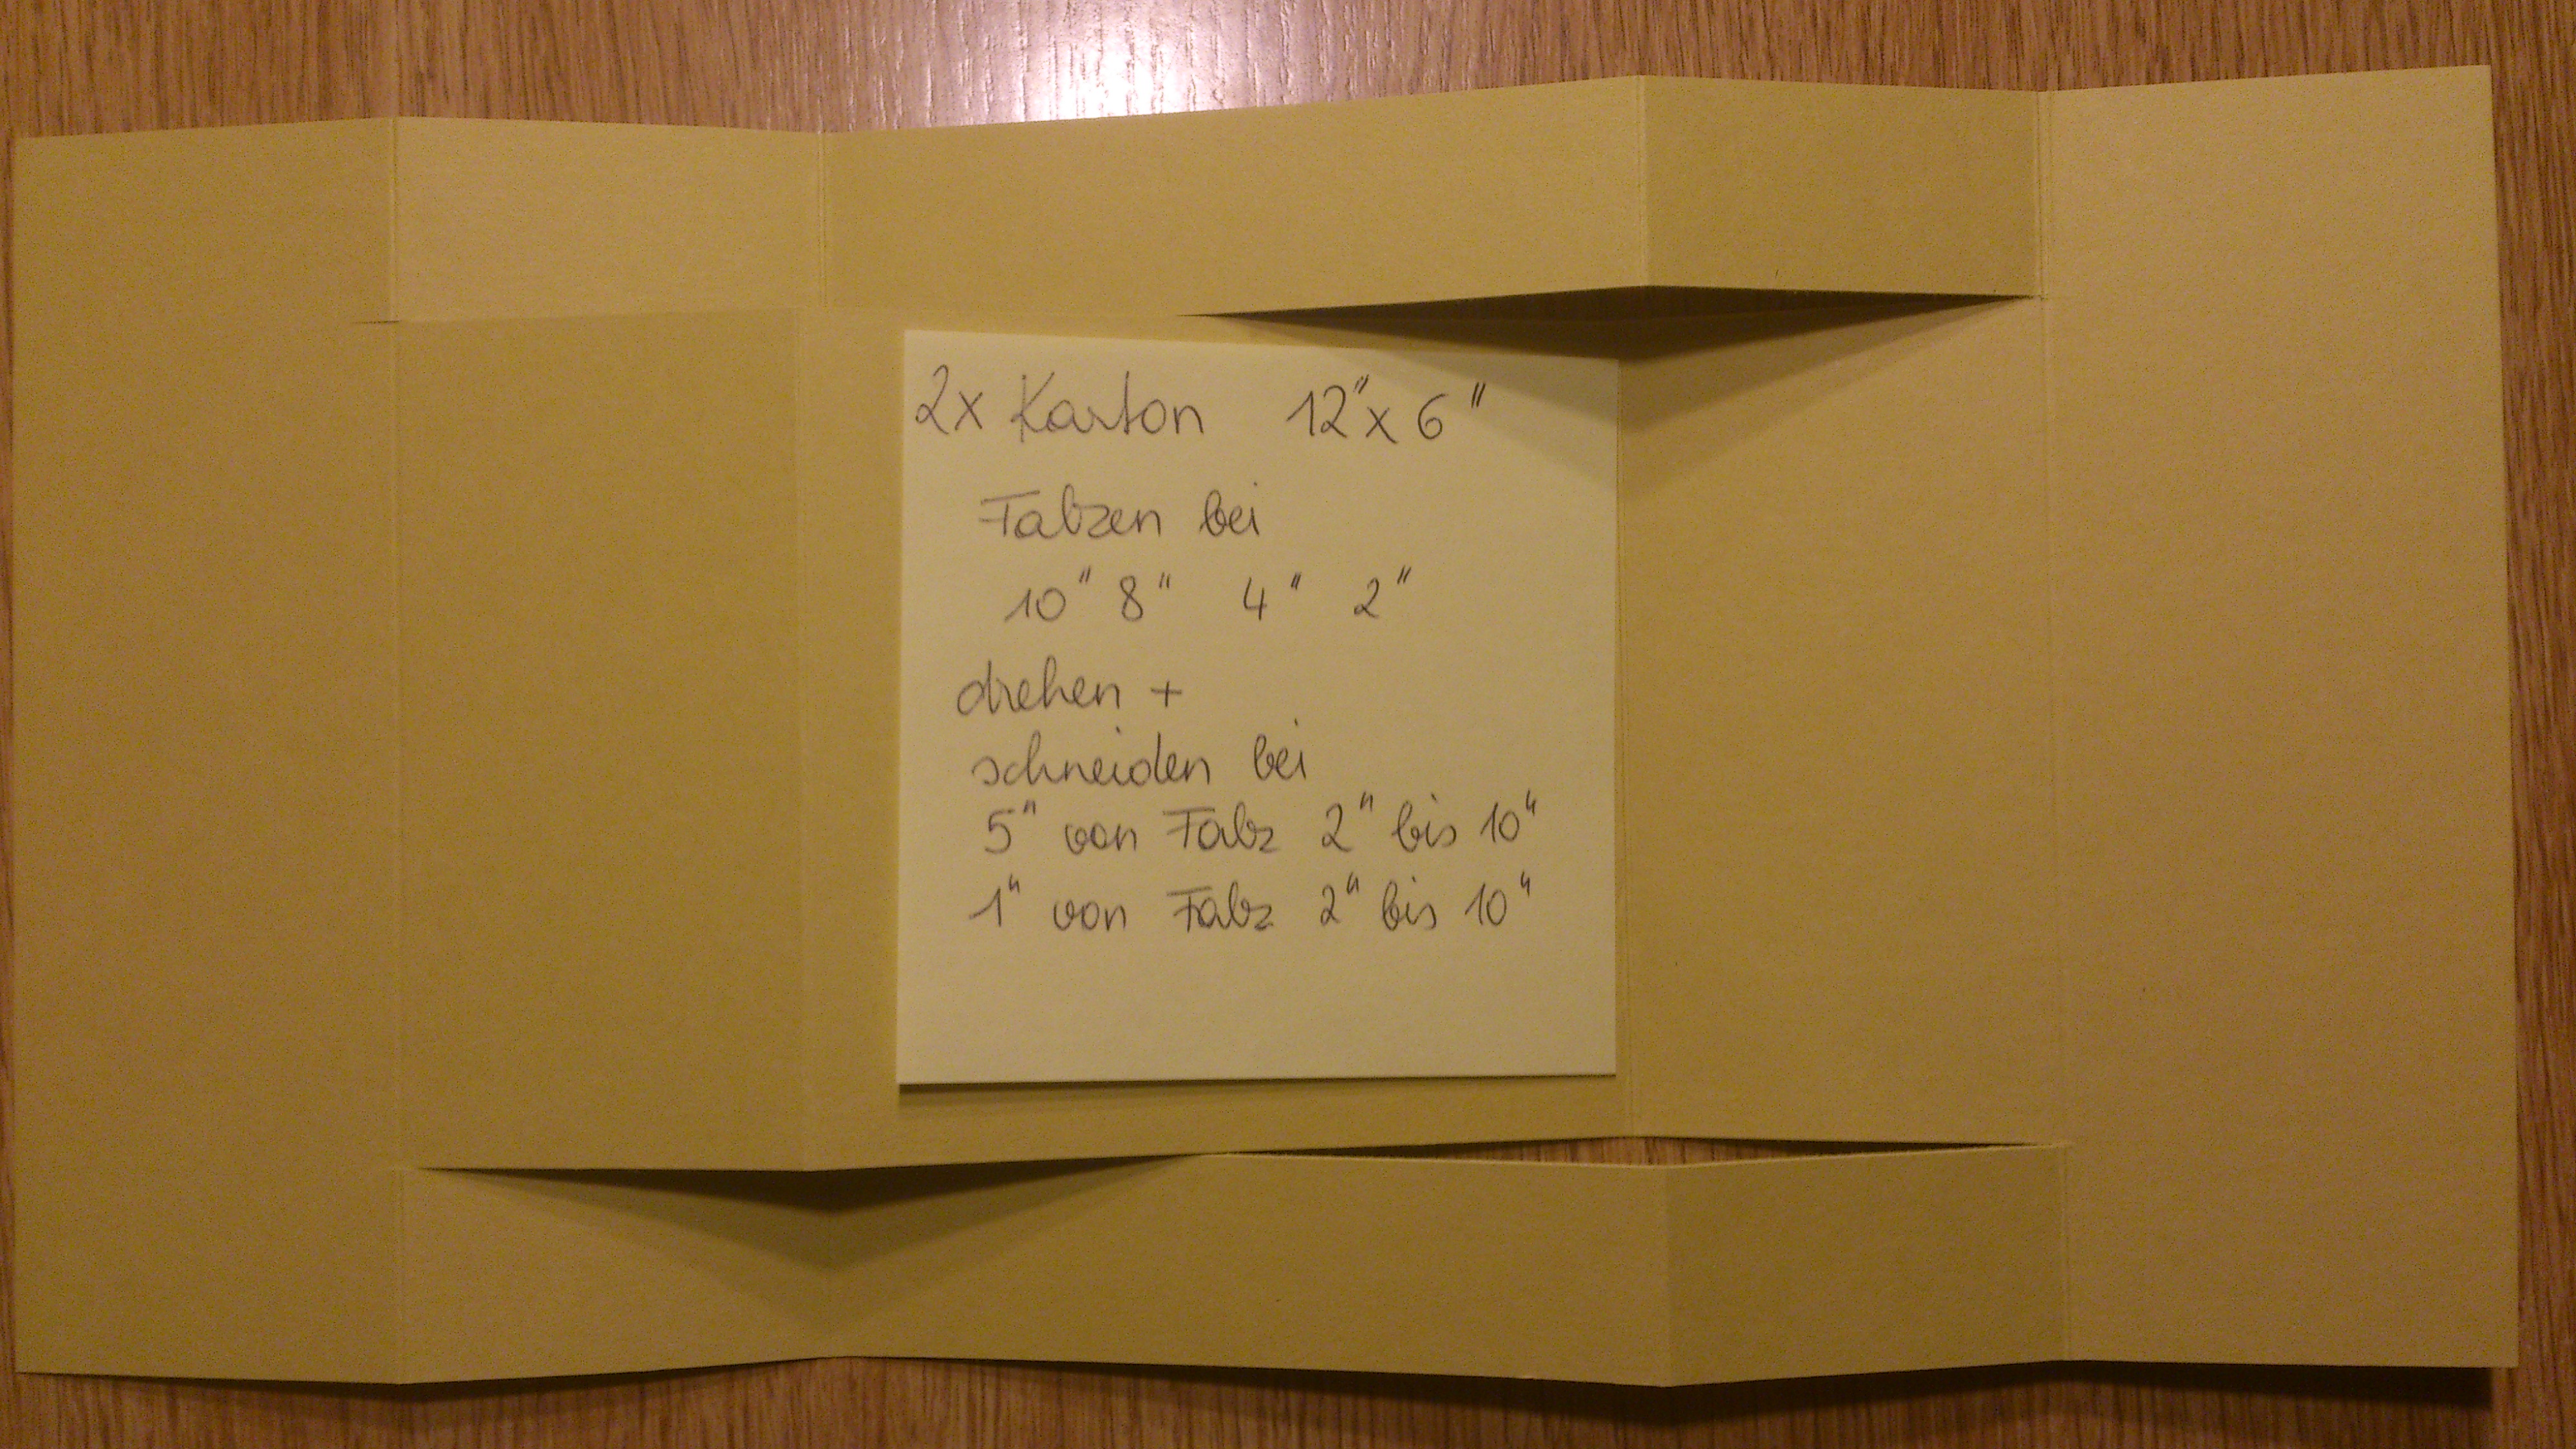 2x Karton 12" x 6"
Falzen bei
10" 8" 4" 2"
drehen +
schneiden bei
5" von Falz 2" bis 10"
1" von Falz 2" bis 10"